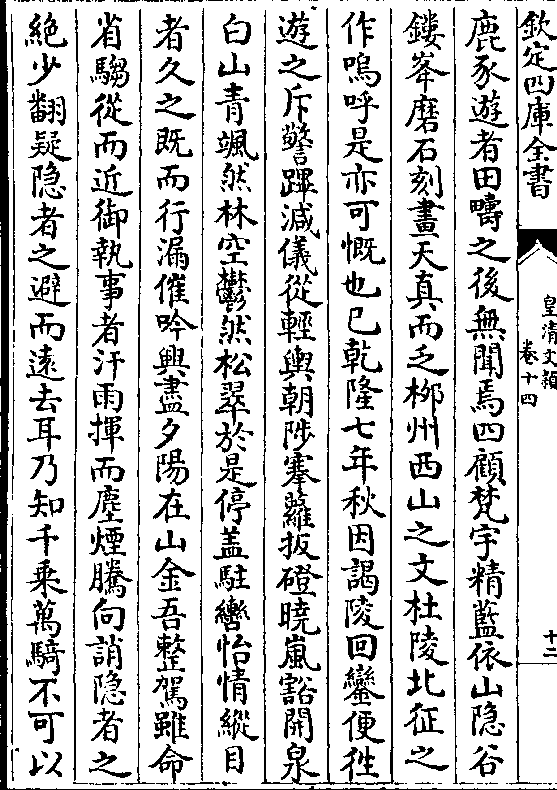 欽定四庫全書
皇清文頴
卷十四
十二
鹿豕遊者田疇之後無聞焉四顧梵宇精藍依山隐谷
鏤峯磨石刻畫天真而乏栁州西山之文杜陵北征之
作嗚呼是亦可慨也已乾隆七年秋因謁陵回鑾便徃
遊之斥警蹕減儀從輕輿朝陟搴蘿扳磴曉嵐豁開泉
白山青颯然林空鬱然松翠於是停盖駐轡怡情縱目
者久之既而行漏催吟興盡夕陽在山金吾整駕雖命
省騶從而近御執事者汗雨揮而塵煙騰向誚隐者之
絶少翻疑隐者之避而遠去耳乃知千乘萬騎不可以